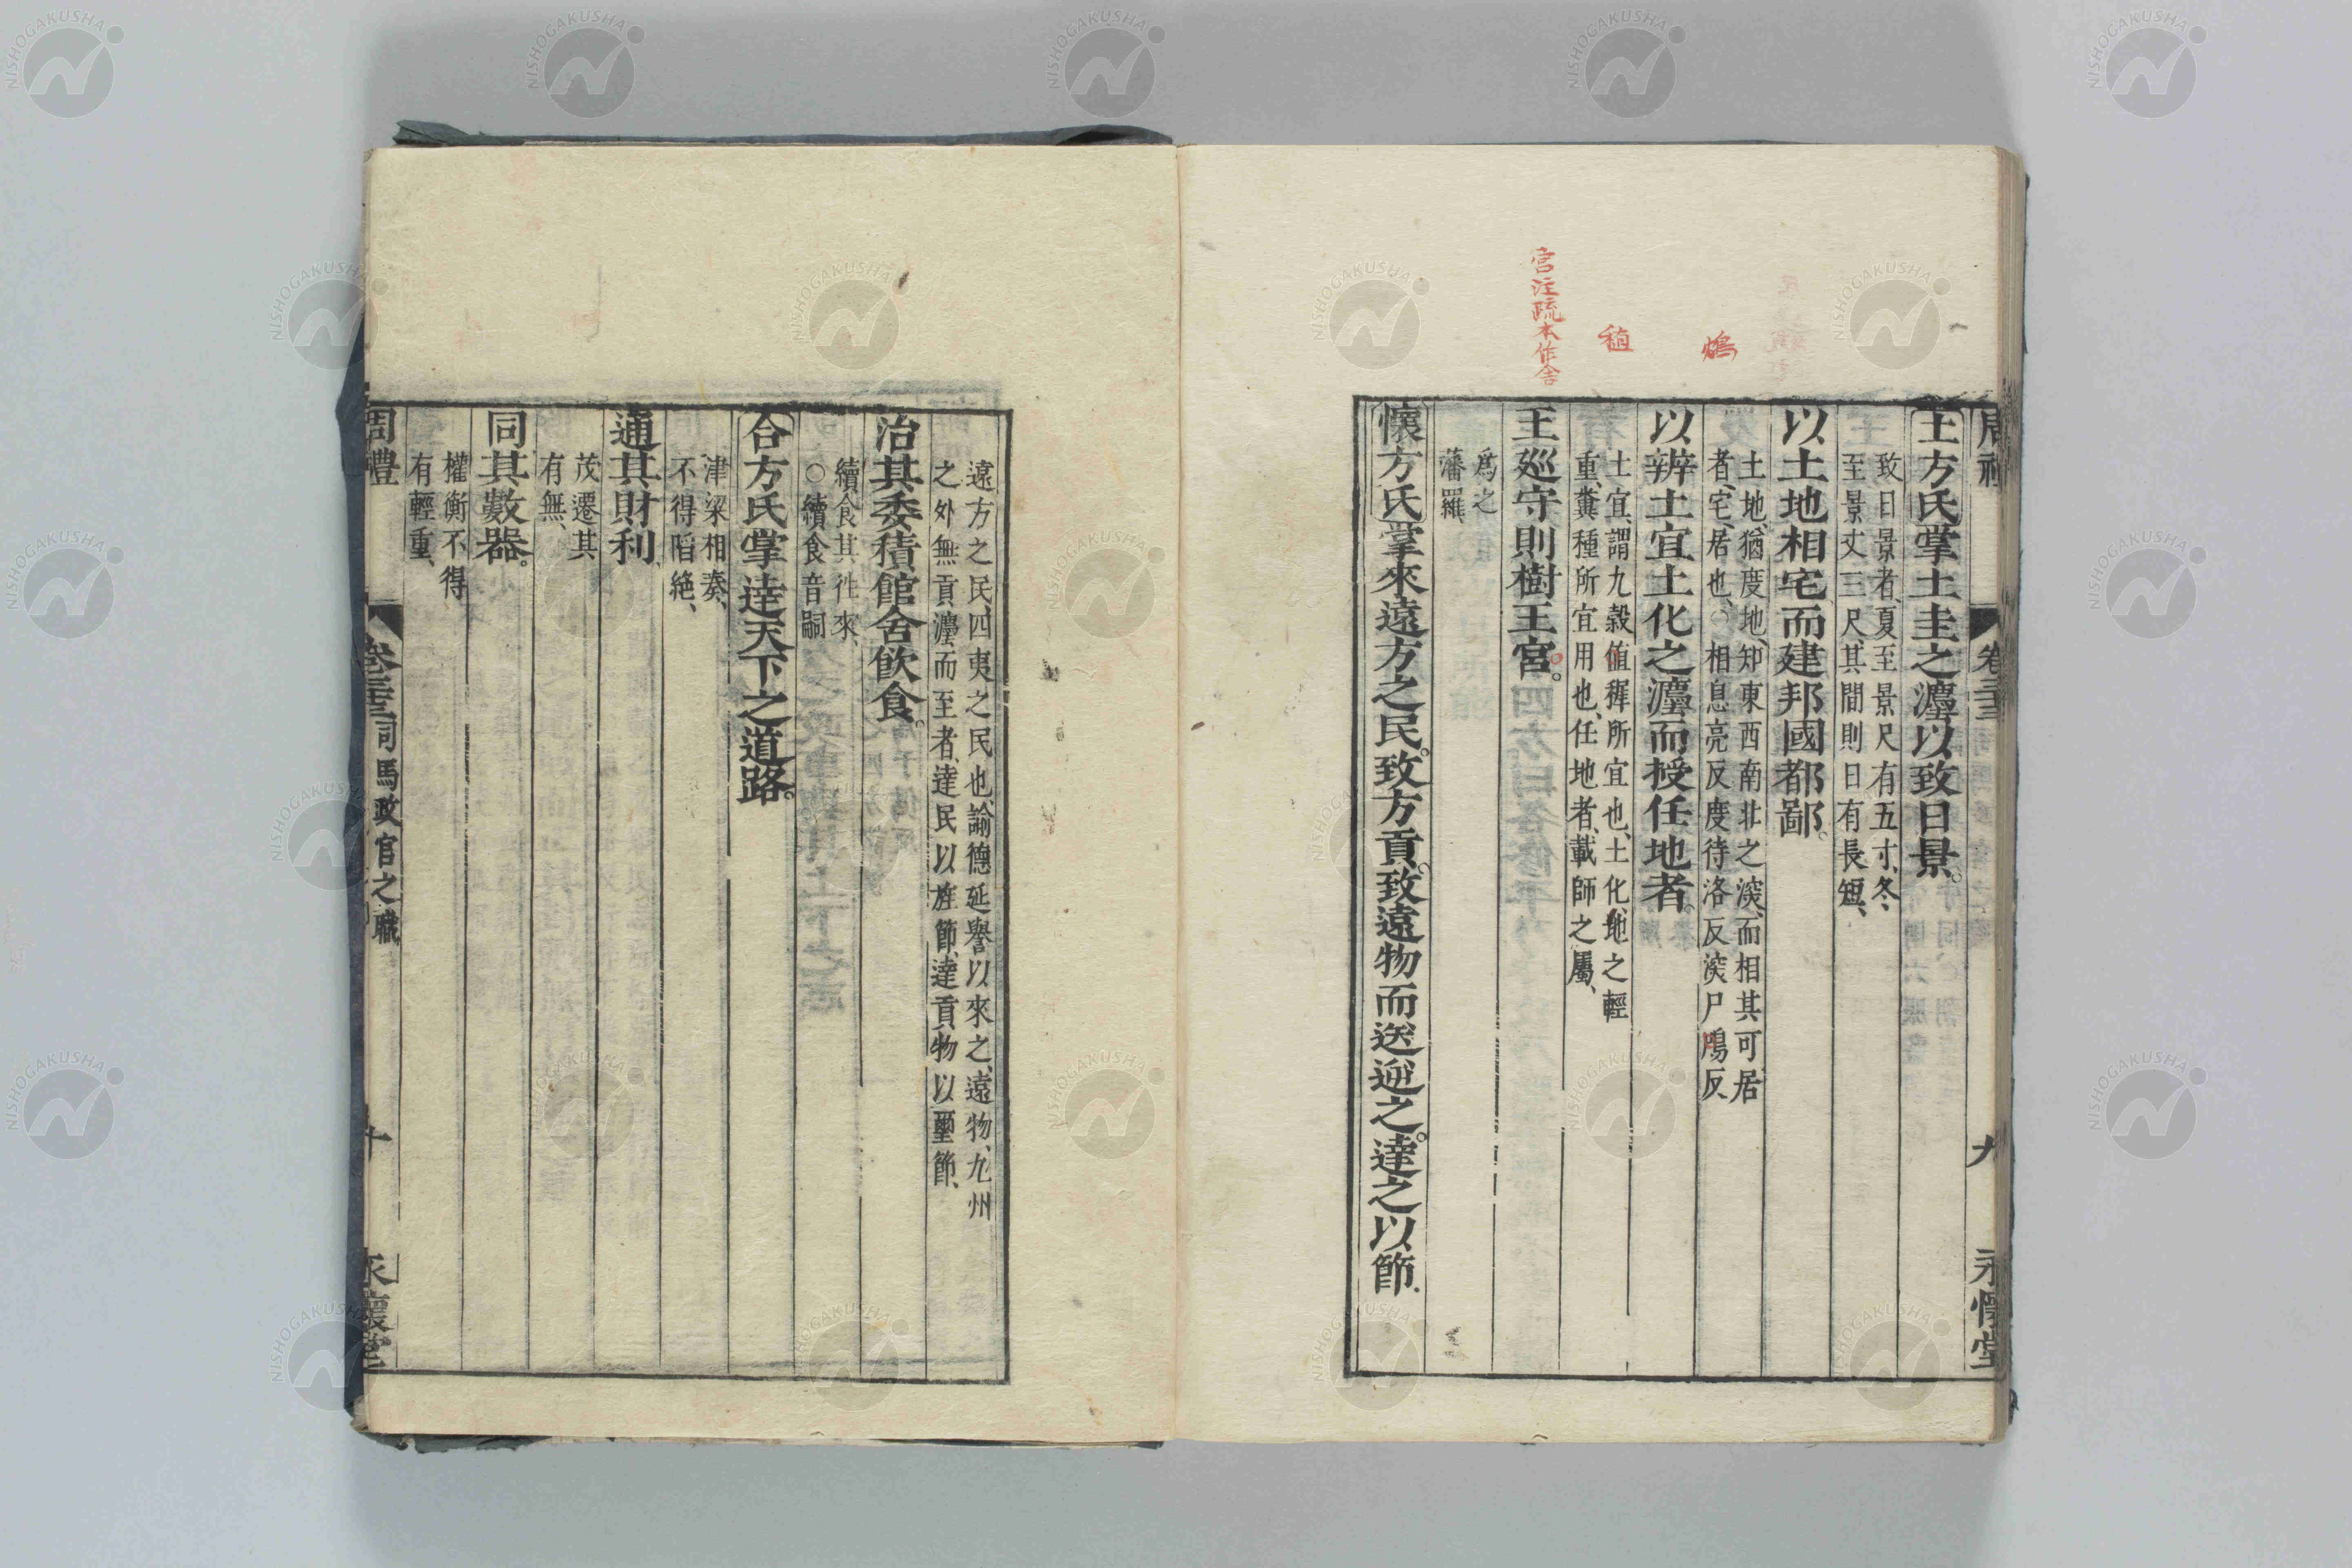 宮注疏本作舎
稙
鴆
周禮
卷三十三
九
永懷堂
土方氏掌土圭之灋以致日景。
致日景者、夏至景尺有五寸、冬
至景丈三尺、其間則日有長短、
以土地相宅而建邦國都鄙。
土地、猶度地、知東西南北之湥、而相其可居
者、宅、居也、○相息亮反度待洛反湥尸鴆反
以辨土宜土化之灋而授任地者。
土宜、謂九穀稙穉所宜也、土化、地之輕
重、糞種所宜用也、任地者、載師之屬、
王廵守則樹王宮。
爲之
藩羅、
懷方氏掌來遠方之民。致方貢。致遠物而送迎之。達之以節。
遠方之民、四夷之民也、諭德延譽以來之、遠物、九州
之外無貢灋而至者、達民以旌節、達貢物以璽節、
治其委積館舍飲食。
續食其往來、
○續食音嗣
合方氏掌達天下之道路。
津梁相奏、
不得陷絶、
通其財利
茂遷其
有無、
同其數器。
權衡不得
有輕重、
周禮
卷三十三 司馬政官之職
十
永懷堂
NISHOGAKUSHA